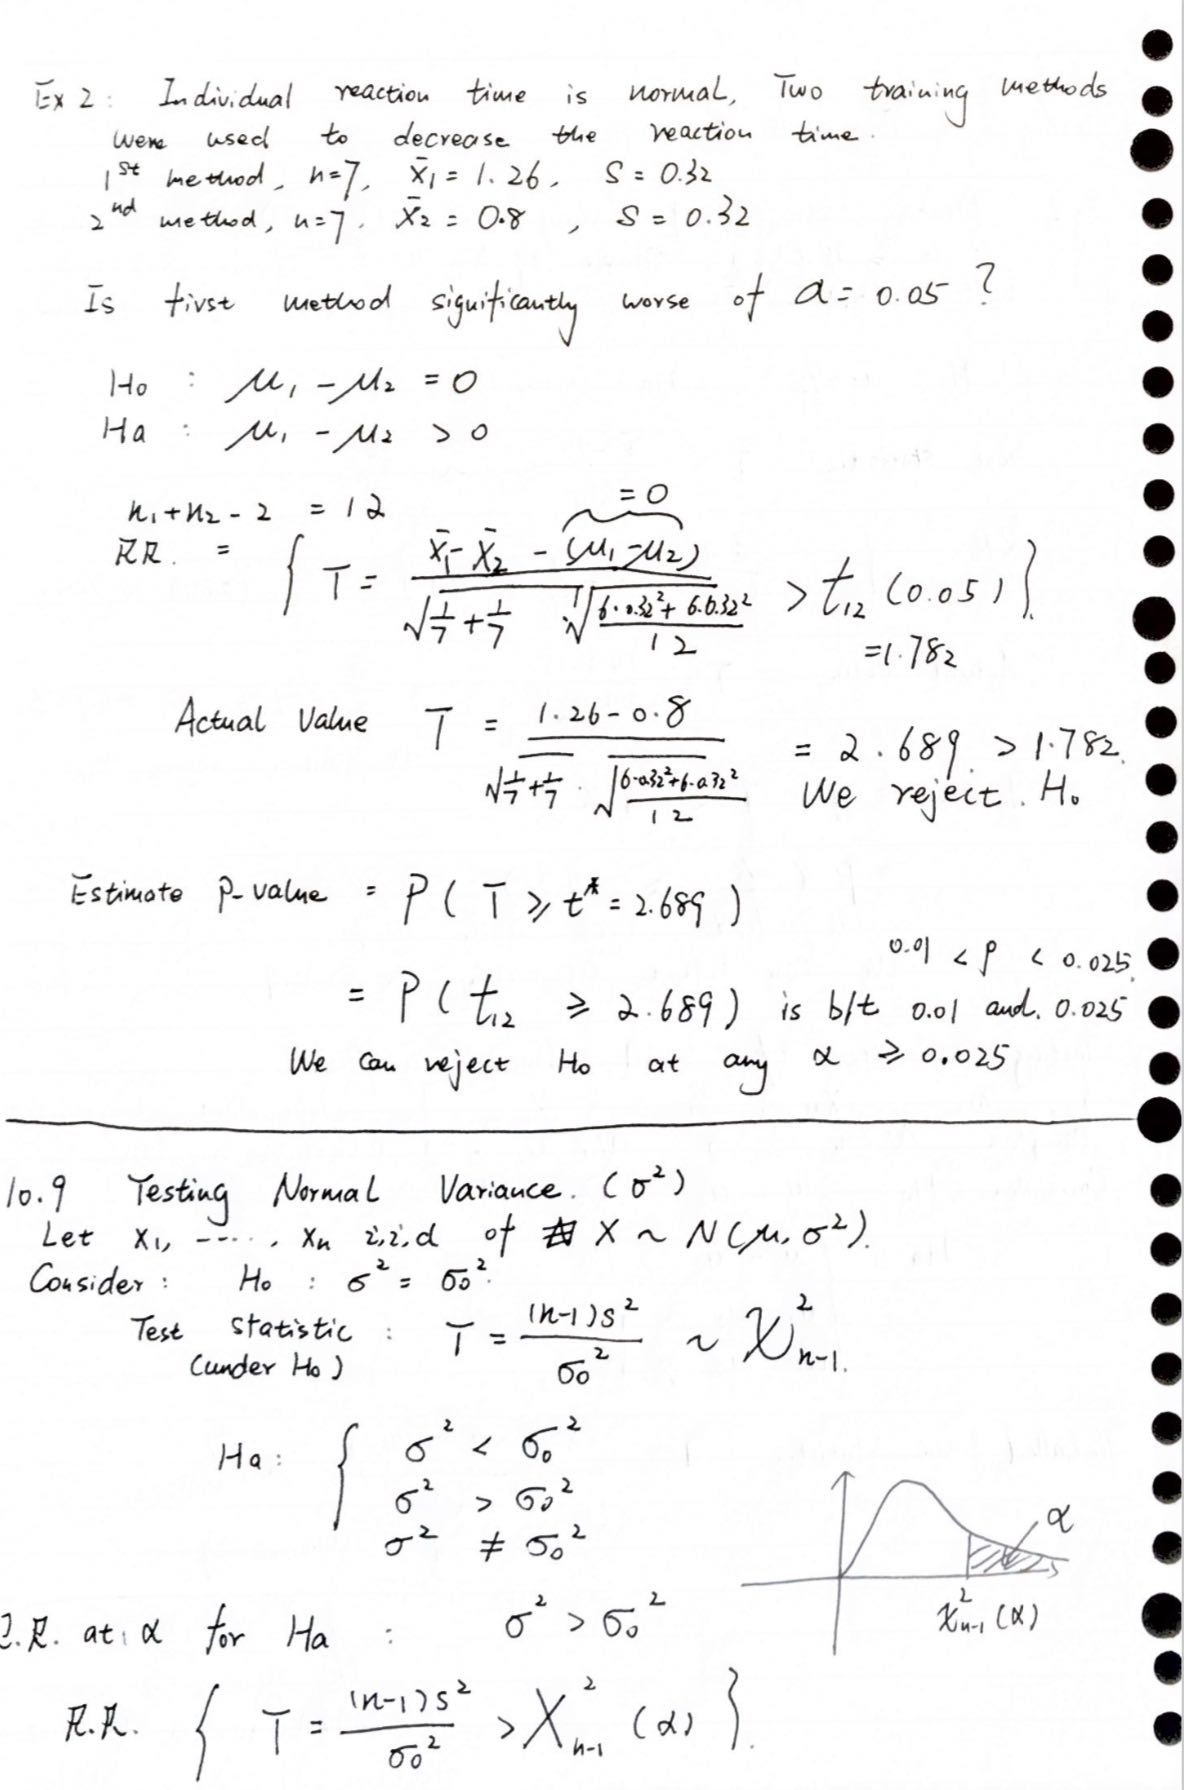 Ex 2: Individual reaction time is normal, Two training methods
were used to decrease the reaction time.
1st method, n=7, x̄₁ = 1.26, S = 0.32
2nd method, n=7, x̄₂ = 0.8, S = 0.32
Is first method significantly worse of α = 0.05 ?
H₀ : μ₁ - μ₂ = 0
Ha : μ₁ - μ₂ > 0
n₁+n₂-2 = 12
R.R. = { T = (x̄₁ - x̄₂ - (μ₁-μ₂)) / (√(1/7 + 1/7) · √((6·0.32² + 6·0.32²)/12)) > t₁₂ (0.05) }
= 0
= 1.782
Actual Value T = (1.26 - 0.8) / (√(1/7 + 1/7) · √((6·0.32² + 6·0.32²)/12)) = 2.689 > 1.782.
We reject. H₀
Estimate p-value = P( T ≥ t* = 2.689 )
0.01 < p < 0.025.
= P( t₁₂ ≥ 2.689 ) is b/t 0.01 and. 0.025
We can reject H₀ at any α ≥ 0.025
10.9 Testing Normal Variance. (σ²)
Let x₁, ....., xₙ i.i.d of X ~ N(μ, σ²).
Consider : H₀ : σ² = σ₀².
Test statistic : T = (n-1)s² / σ₀² ~ χ²ₙ₋₁.
(under H₀)
Ha : { σ² < σ₀²
σ² > σ₀²
σ² ≠ σ₀²
α
χ²ₙ₋₁ (α)
R.R. at α for Ha : σ² > σ₀²
R.R. { T = (n-1)s² / σ₀² > χ²ₙ₋₁ (α) }.